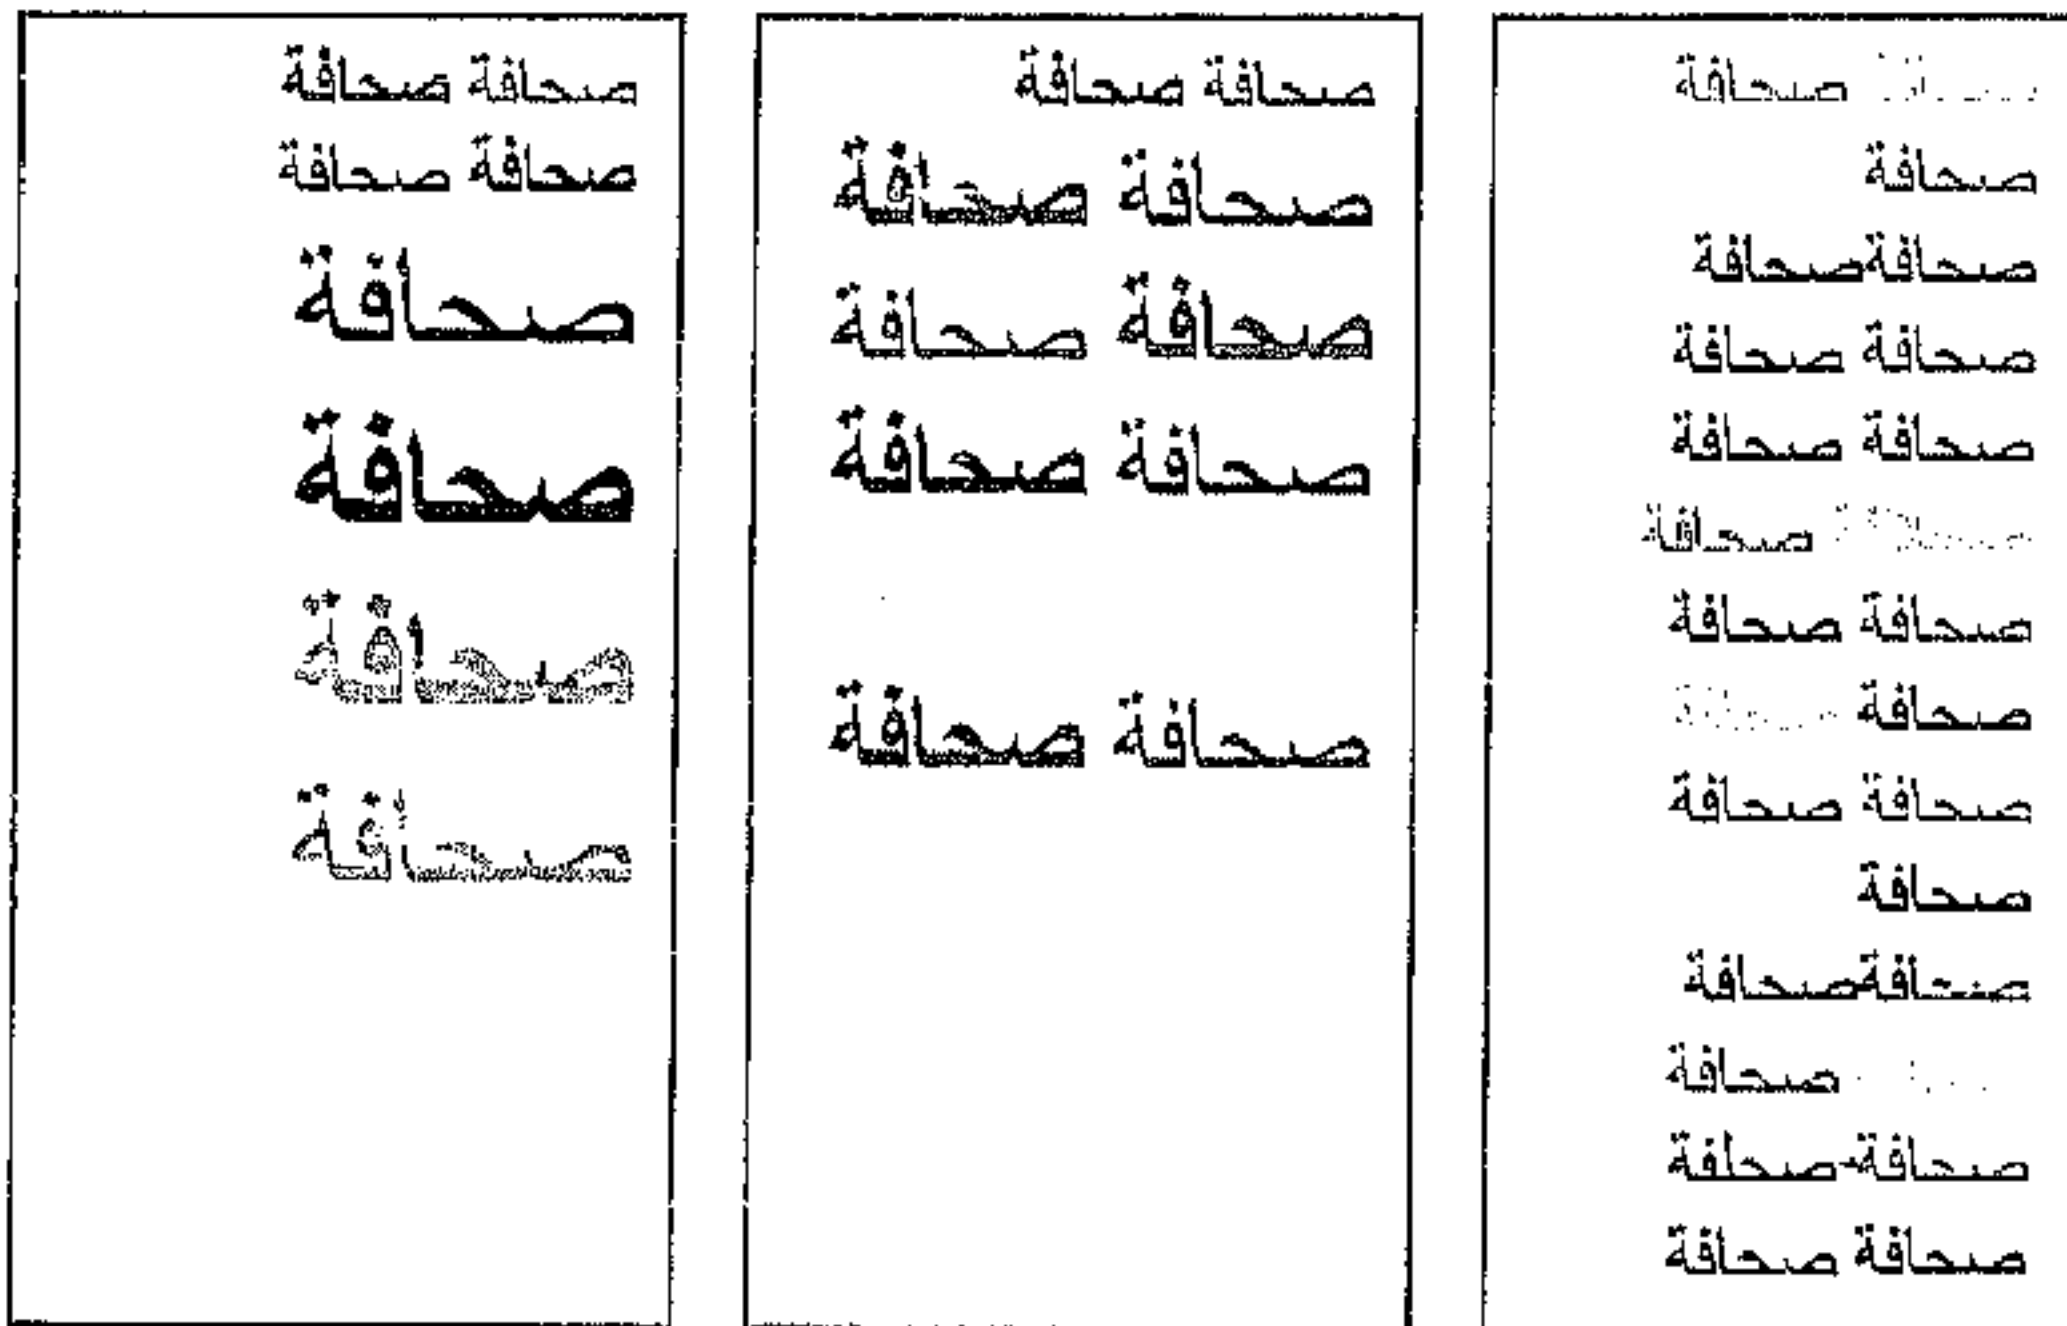 صحافة
صحافة
صحافة صحافة
صحافة صحافة
صحافة صحافة
صحافة
صحافة صحافة
صحافة
صحافة صحافة
صحافة
صحافة صحافة
صحافة
صحافة صحافة
صحافة صحافة
صحافة صحافة
صحافة صحافة
صحافة صحافة
صحافة صحافة
صحافة صحافة
صحافة صحافة
صحافة صحافة
صحافة
صحافة
صحافة
صحافة